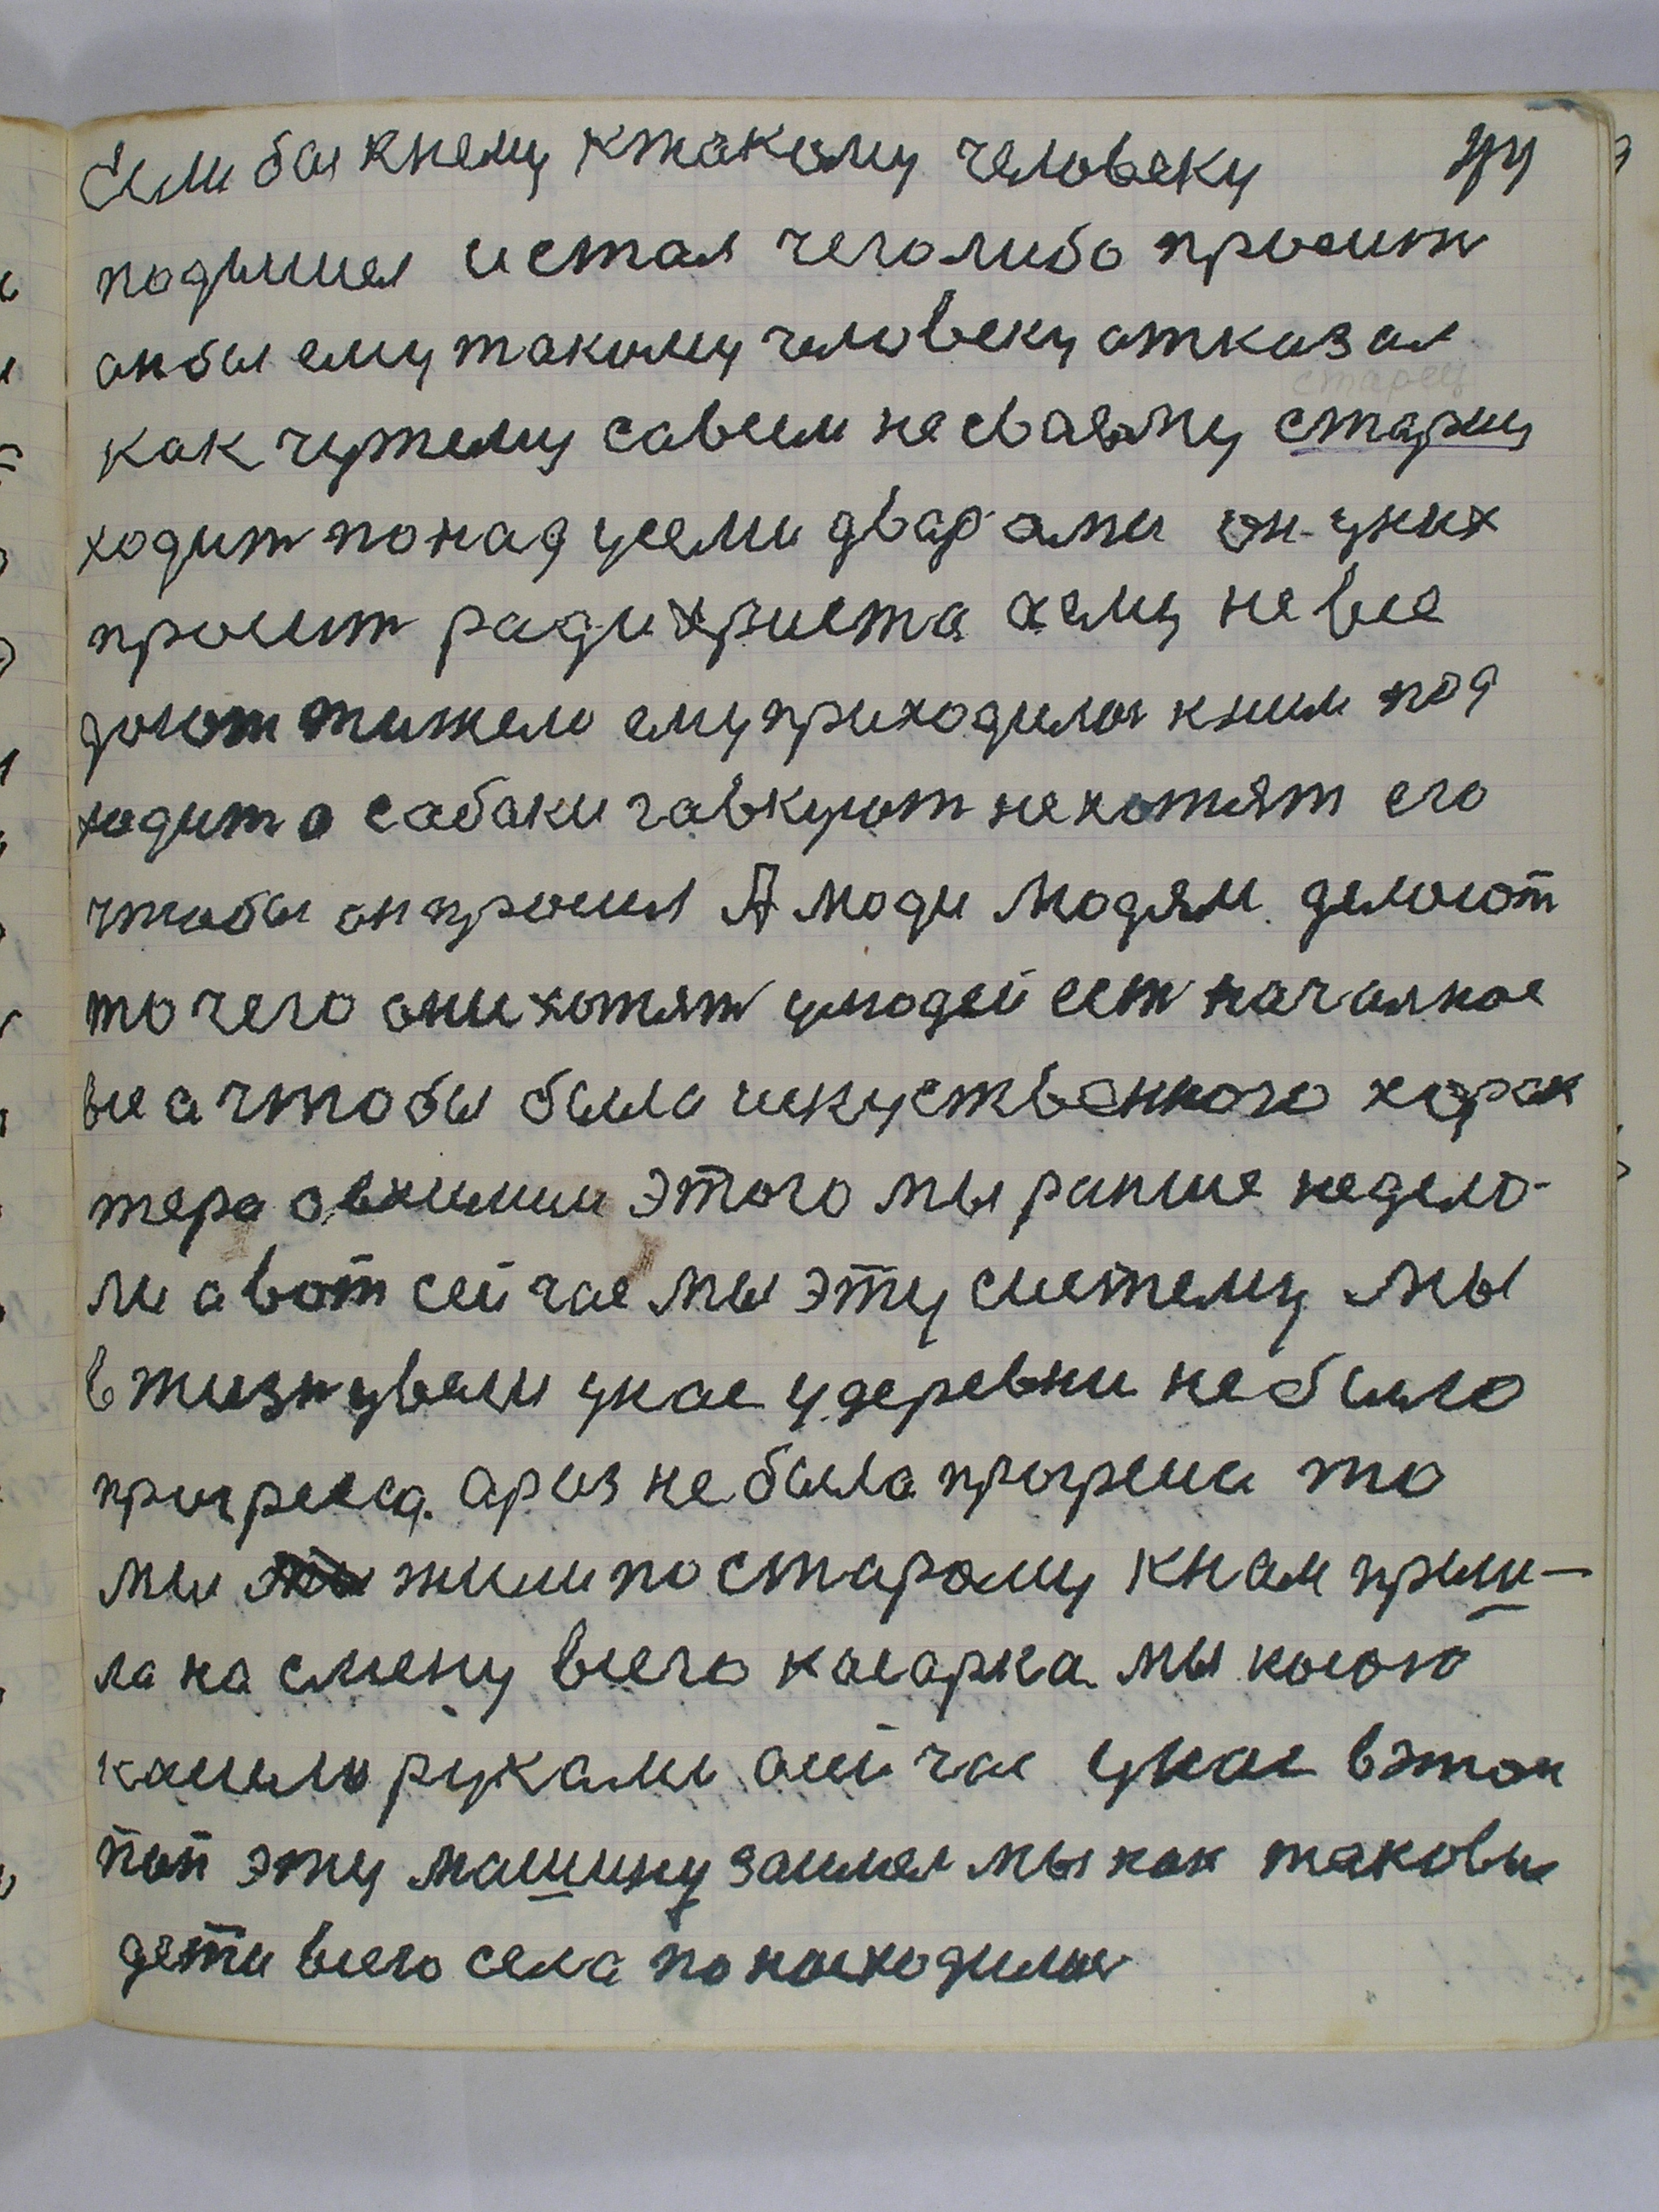 Если бы кнему ктакому человеку
подышел истал чеголибо просит
онбы ему такому человеку отказал
старец
как чужему савсем несваяму старцу
ходит понад усеми дварами он уних
просит радихриста аему невсе
дают тижело емуприходилос кним под
ходит а сабаки гавкуют нехотят его
чтобы онпросил А люди людям делают
то чего онихотят улюдей ест началное
все а чтобы была искуственного харак
тера овхимии этого мы ранше недела-
ли авот сейчас мы эту систему мы
вжизн увели унас удеревни небыло
прогресса. араз не было прогреса то
мы жили постарому кнам приш-
ла на смену всего касарка мы косою
касили руками асейчас унас вэтом
поп эту машину заимел мы как таковы
дети всего села понасходилис